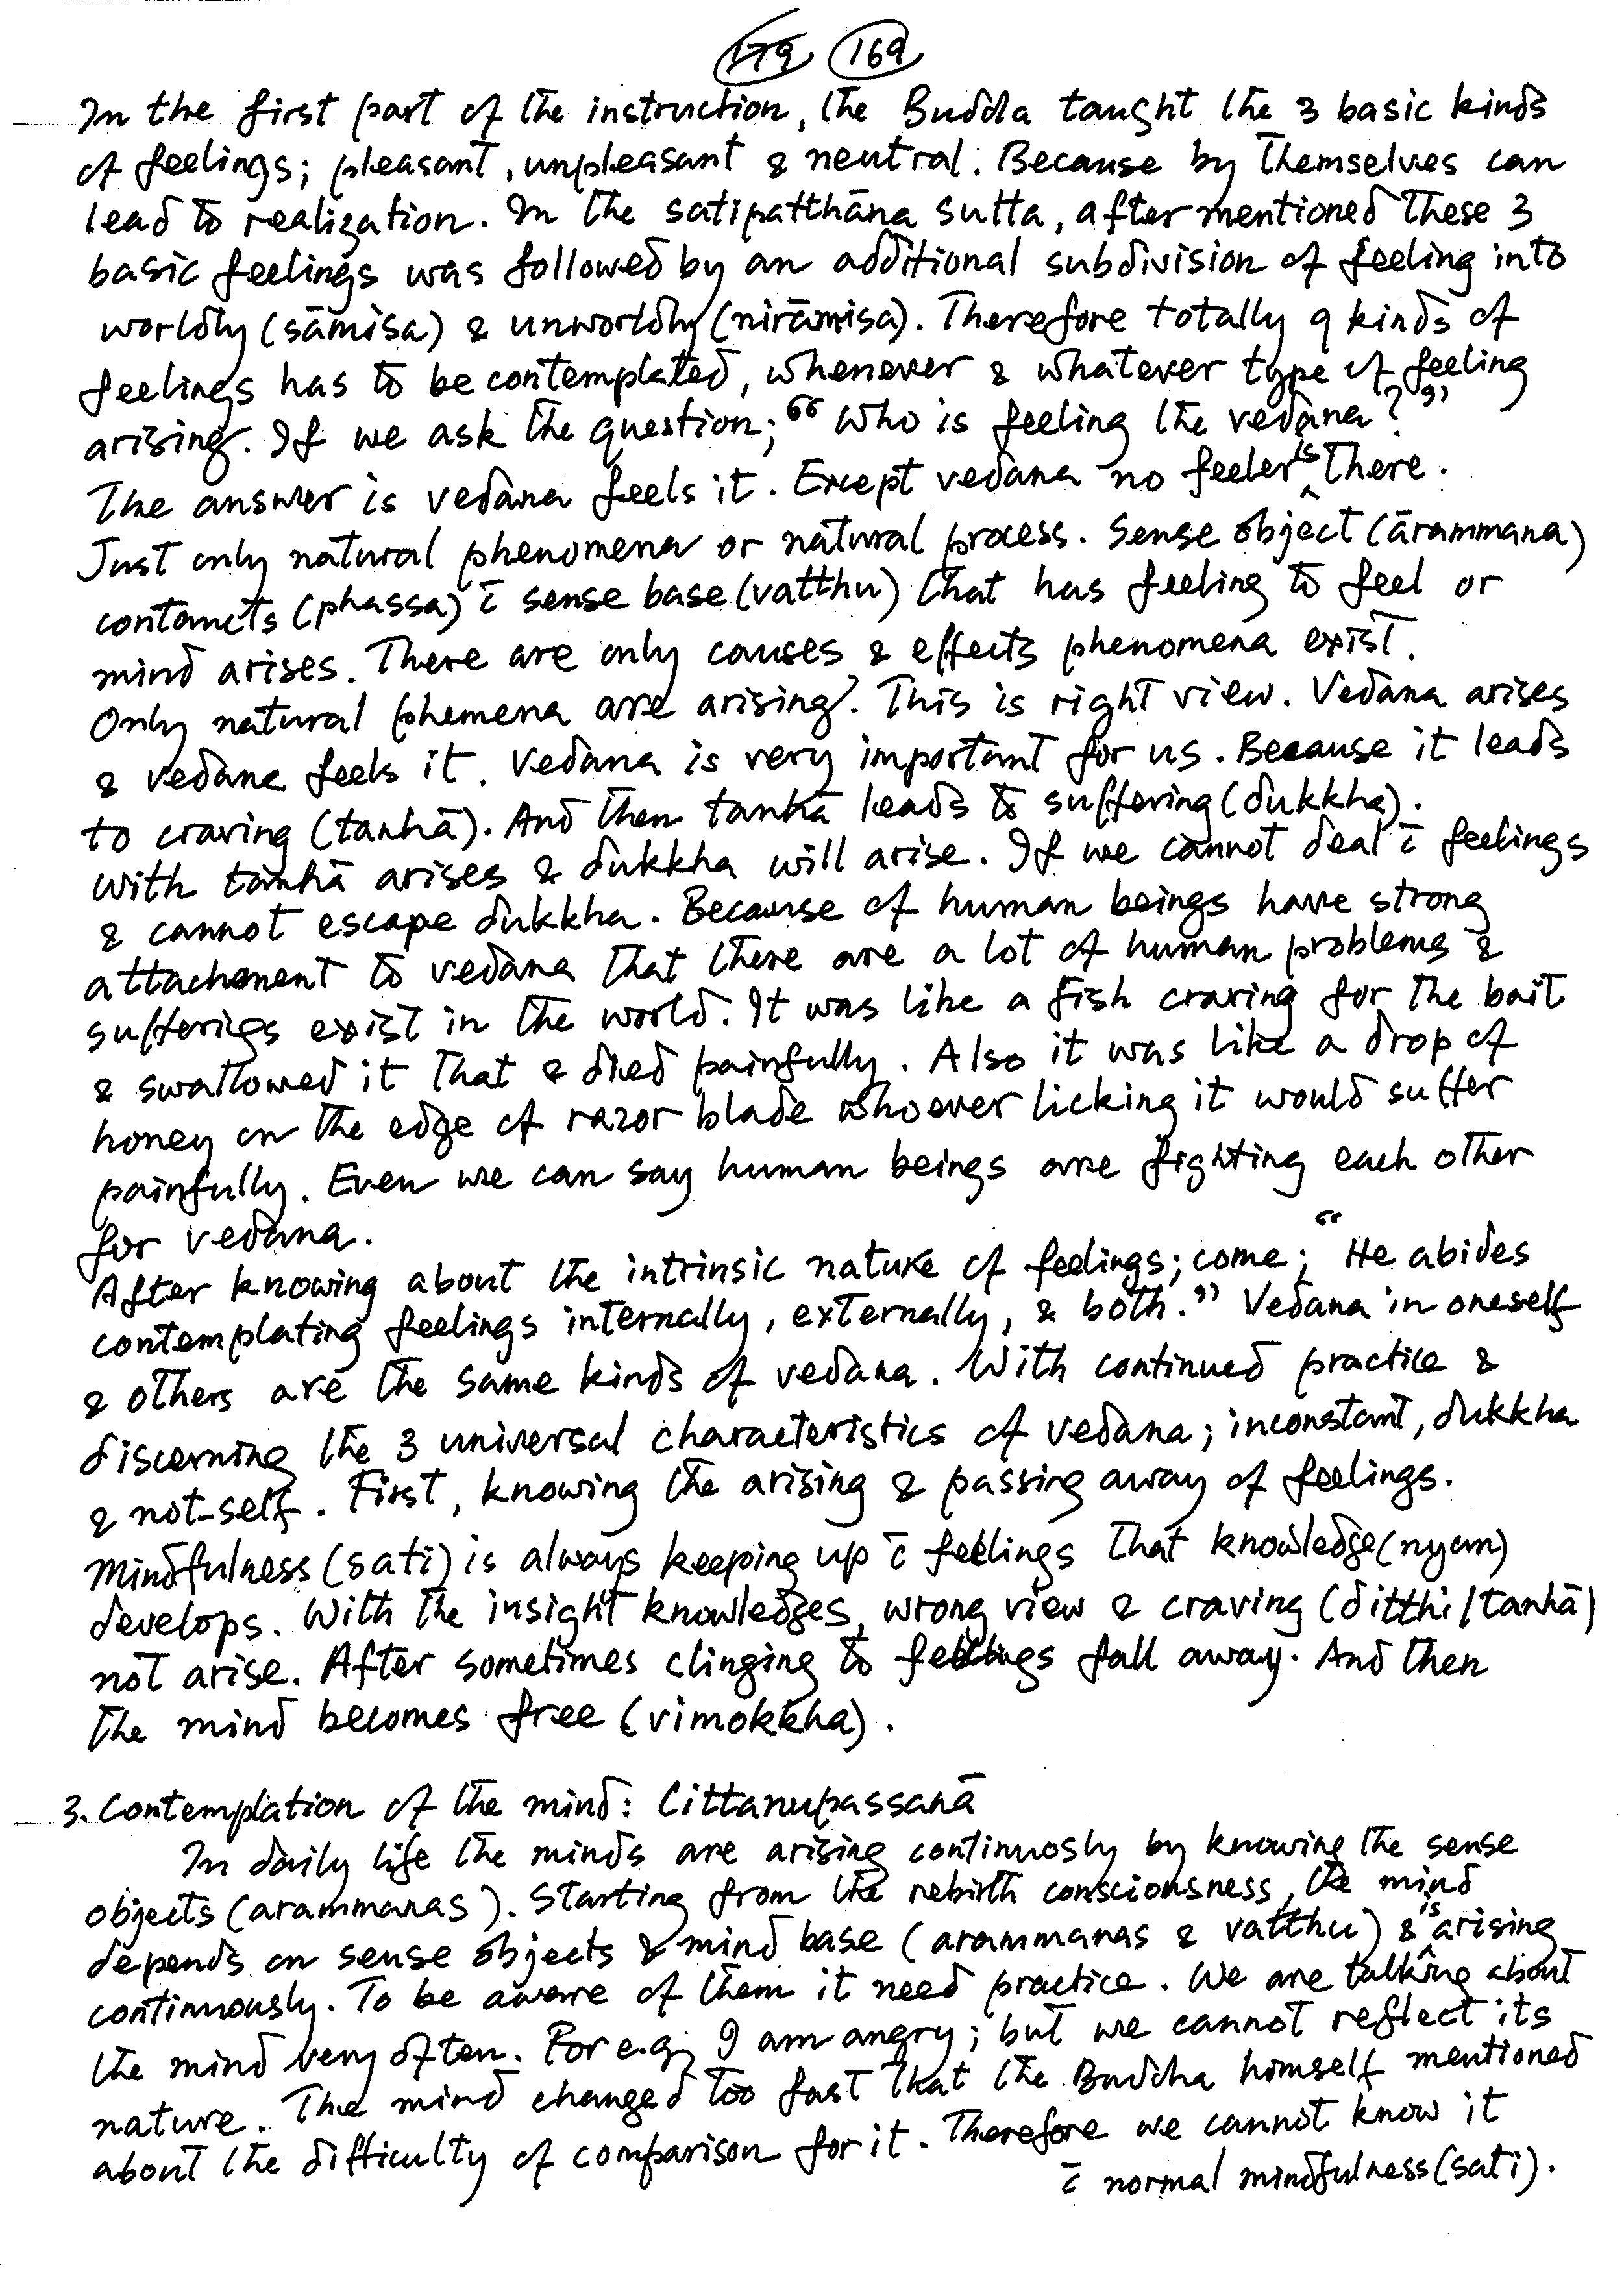 179 169
In the first part of the instruction, the Buddha taught the 3 basic kinds
of feelings; pleasant, unpleasant & neutral. Because by themselves can
lead to realization. In the satipatthāna sutta, after mentioned these 3
basic feelings was followed by an additional subdivision of feeling into
worldly (sāmisa) & unworldly (nirāmisa). Therefore totally 9 kinds of
feelings has to be contemplated, whenever & whatever type of feeling
arising. If we ask the question; “Who is feeling the vedana?”
The answer is vedana feels it. Except vedana no feeler is there.
Just only natural phenomena or natural process. Sense object (ārammana)
contancts (phassa) c̄ sense base (vatthu) that has feeling to feel or
mind arises. There are only causes & effects phenomena exist.
Only natural phemena are arising. This is right view. Vedana arises
& vedana feels it. Vedana is very important for us. Because it leads
to craving (tanhā). And then tanhā leads to suffering (dukkha).
With tanhā arises & dukkha will arise. If we cannot deal c̄ feelings
& cannot escape dukkha. Because of human beings have strong
attachment to vedana that there are a lot of human problems &
sufferigs exist in the world. It was like a fish craving for the bait
& swallowed it that & died painfully. Also it was like a drop of
honey on the edge of razor blade whoever licking it would suffer
painfully. Even we can say human beings are fighting each other
for vedana.
After knowing about the intrinsic nature of feelings; come; “He abides
contemplating feelings internally, externally, & both.” Vedana in oneself
& others are the same kinds of vedana. With continued practice &
discerning the 3 universal characteristics of vedana; inconstant, dukkha
& not-self. First, knowing the arising & passing away of feelings.
Mindfulness (sati) is always keeping up c̄ feelings that knowledge (nyan)
develops. With the insight knowledges, wrong view & craving (ditthi/tanhā)
not arise. After sometimes clinging to feelings fall away. And then
the mind becomes free (vimokkha).
3. Contemplation of the mind: Cittanupassanā
In daily life the minds are arising continuosly by knowing the sense
objects (arammanas). Starting from the rebirth consciousness, the mind
depends on sense objects & mind base (arammanas & vatthu) & is arising
continuously. To be aware of them it need practice. We are talking about
the mind very often. For e.g; I am angry; but we cannot reflect its
nature. The mind changed too fast that the Buddha himself mentioned
about the difficulty of comparison for it. Therefore we cannot know it
c̄ normal mindfulness (sati).